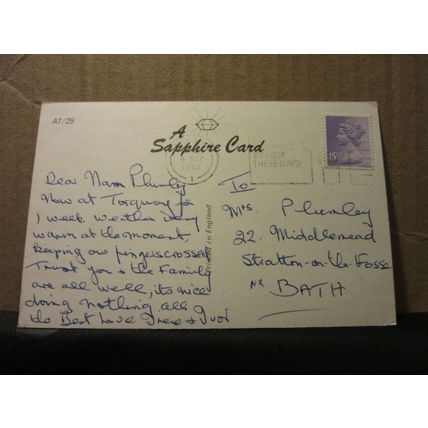 A7/29
A
Sapphire Card
6 SEP
1982
BY POST
THESE DAYS!
15½P
Printed in England
Dear Mam Plumley
Now at Torquay for
1 week. Weather very
warm at the moment,
keeping our fingers crossed
Trust you & the Family
are all well, its nice
doing nothing all
the Best Love Irene & Ivor
To
Mrs Plumley
22. Middlemead
Stratton-on-the-Fosse
NR BATH